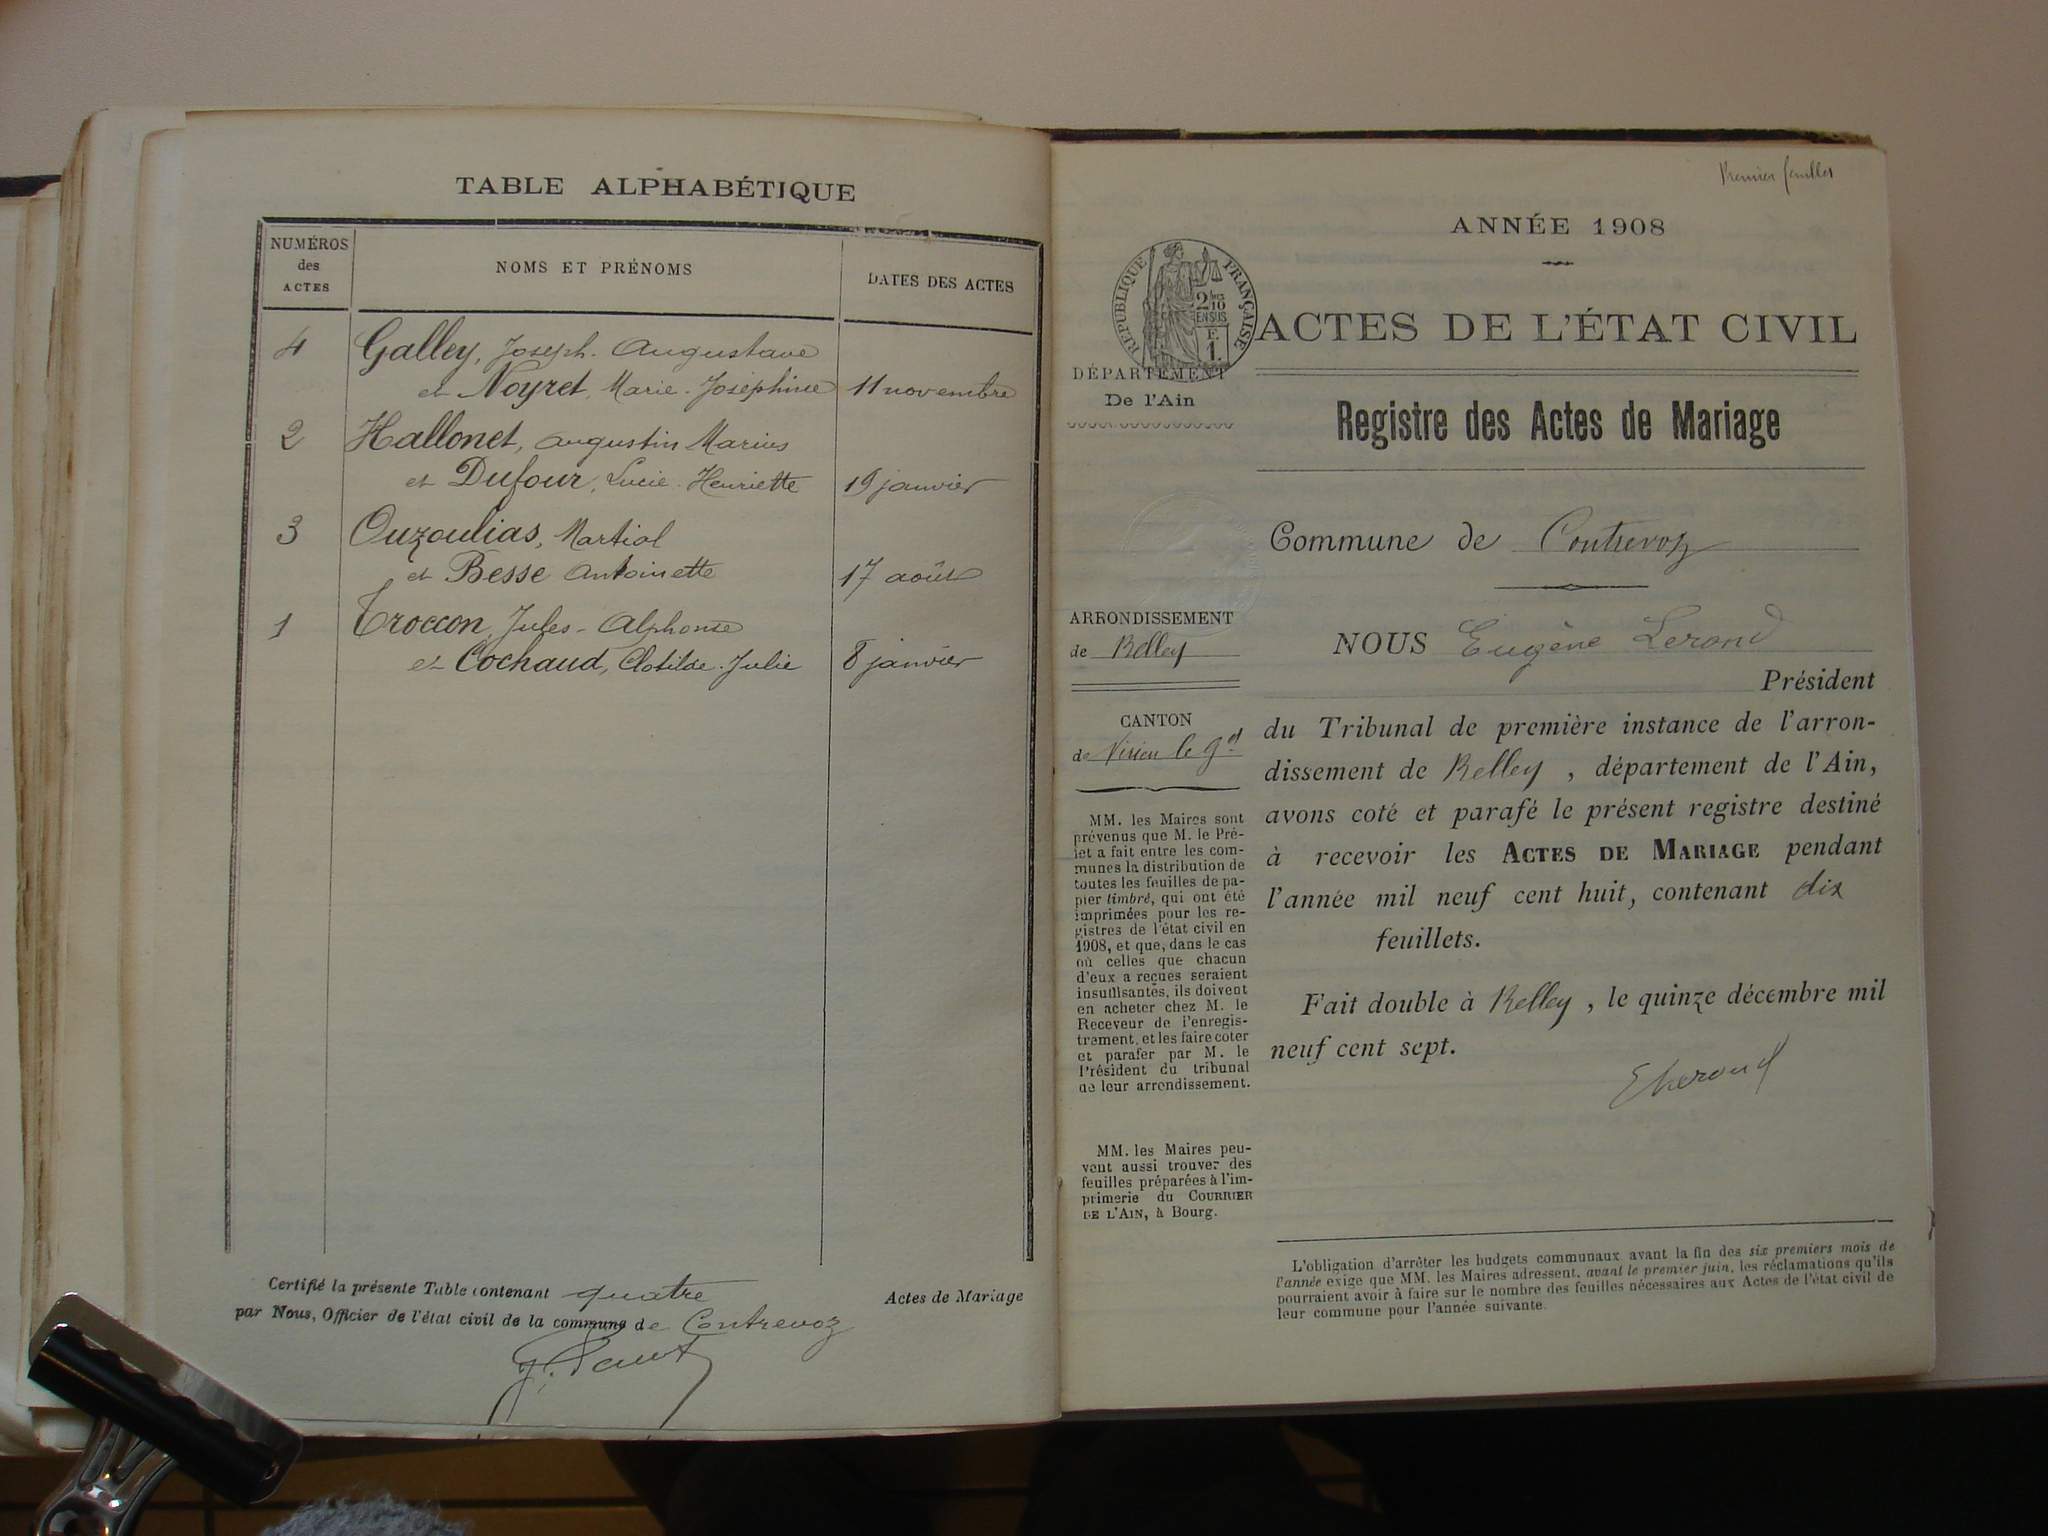 TABLE ALPHABÉTIQUE
NUMÉROS
des
ACTES
NOMS ET PRÉNOMS
DATES DES ACTES
4 Galley, Joseph-Augustave
et Noyret, Marie-Joséphine 11 novembre
2 Hallonet, Augustin Marius
et Dufour, Lucie-Henriette 19 janvier
3 Ouzoulias, Martial
et Besse Antoinette 17 août
1 Troccon, Jules-Alphonse
et Cochaud, Clotilde-Julie 8 janvier
Certifié la présente Table contenant quatre Actes de Mariage
par Nous, Officier de l'état civil de la commune de Contrevoz
Premier feuillet
ANNÉE 1908
RÉPUBLIQUE FRANÇAISE
2/10
EN SUS
F.
1.
ACTES DE L'ÉTAT CIVIL
DÉPARTEMENT
De l'Ain
Registre des Actes de Mariage
Commune de Contrevoz
ARRONDISSEMENT
de Belley
CANTON
de Virieu le Gd
MM. les Maires sont
prévenus que M. le Pré-
fet a fait entre les com-
munes la distribution de
toutes les feuilles de pa-
pier timbré, qui ont été
imprimées pour les re-
gistres de l'état civil en
1908, et que, dans le cas
où celles que chacun
d'eux a reçues seraient
insuffisantes, ils doivent
en acheter chez M. le
Receveur de l'enregis-
trement, et les faire coter
et parafer par M. le
Président du tribunal
de leur arrondissement.
MM. les Maires peu-
vent aussi trouver des
feuilles préparées à l'im-
primerie du COURRIER
DE L'AIN, à Bourg.
NOUS Eugène Lerond
Président
du Tribunal de première instance de l'arron-
dissement de Belley, département de l'Ain,
avons coté et parafé le présent registre destiné
à recevoir les ACTES DE MARIAGE pendant
l'année mil neuf cent huit, contenant dix
feuillets.
Fait double à Belley, le quinze décembre mil
neuf cent sept.
ELerond
L'obligation d'arrêter les budgets communaux avant la fin des six premiers mois de
l'année exige que MM. les Maires adressent, avant le premier juin, les réclamations qu'ils
pourraient avoir à faire sur le nombre des feuilles nécessaires aux Actes de l'état civil de
leur commune pour l'année suivante.